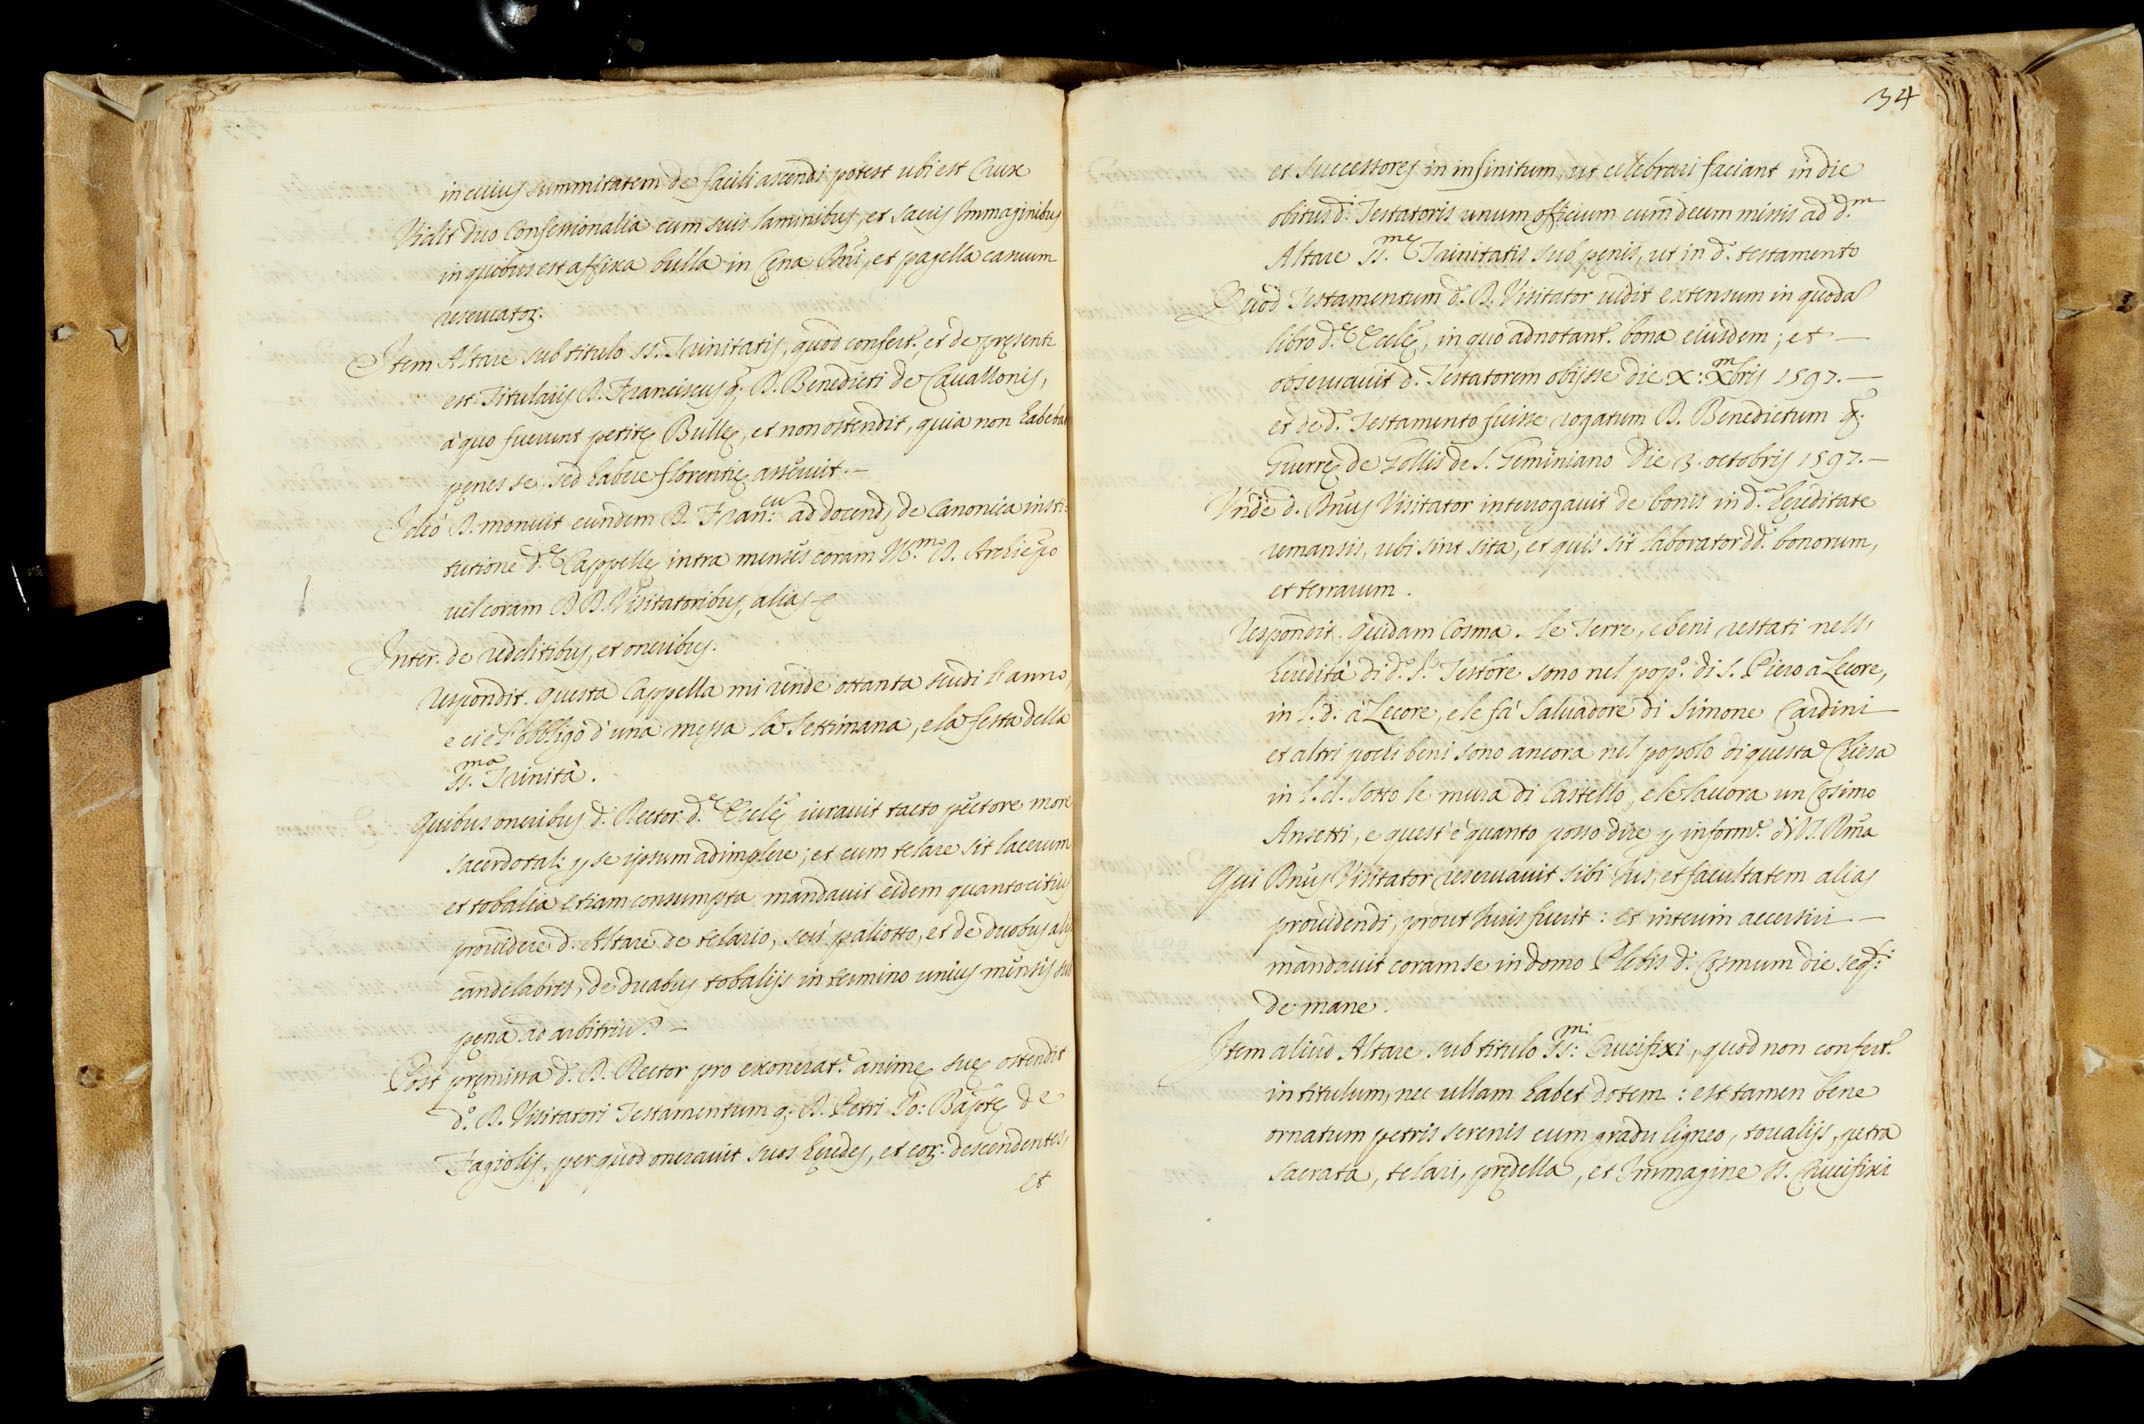 in cuius summitatem de facili ascendi potest ubi est Crux
Vidit duo Confessionalia cum suis laminibus, et sacris Immaginibus
in quibus est affixa bulla in Cena Dñi, et pagella casuum
reservatoꝝ.
Item Altare sub titulo SS. Trinitatis, quod confert.r, et de pręsenti
est Titularis D. Franciscus q. D. Benedicti de Cavallonis,
à quo fuerunt petitę Bullę, et non ostendit, quia non habebat
penes se, sed habere florentię asseruit. —
Ideò D. monuit eundem D. Fran:cu ad docend. de Canonica insti:
tutione d.ę Cappellę intra mensus coram Ill.mo D. Archiepo
vel coram D D. Visitatoribus, alias &
Inter. de redditibus, et oneribus.
Respondit. Questa Cappella mi rende ottanta scudi l'anno,
e ci è l'obbligo d'una messa la Settimana, e la festa della
SS.ma Trinità.
Quibus oneribus d. Rector d.ę Ecclę iuravit tacto pectore more
sacerdotali p se ipsum adimplere; et cum telare sit lacerum
et tobalia etiam consumpta mandavit eidem quanto citius
providere d. Altare de telario, seù paliotto, et de duobus alijs
candelabris, de duabus tobalijs in termino unius mensis sub
pęna ad arbitriũ. —
Post pręmissa d. D. Rector pro exonerat.e animę suę ostendit
d.o D. Visitatori Testamentum q. D. Petri Jo: Baptę de
Fagiolis, per quod oneravit suos hęredes, et eoꝝ. descendentes,
et
34
et successores in infinitum, ut celebrari faciant in die
obitus d.i Testatoris unum officium cum decem missis ad d.m
Altare SS.mę Trinitatis sub pęnis, ut in d.o testamento
Quòd Testamentum d. D. Visitator vidit extensum in quodã
libro d.ę Ecclę, in quo adnotant.r bona eiusdem; et —
observavit d. Testatorem obijsse die X: Xmbris 1597. —
et de d.o Testamento fuisse rogatum D. Benedictum q.
Guerrę de Gollis de S. Geminiano Die 3. octobris 1597. —
Vnde d. Dñus Visitator interrogavit de bonis in d.a hęreditate
remansis, ubi sint sita, et quis sit laborator dd. bonorum,
et terrarum.
Respondit quidam Cosma. Le Terre, e beni restati nell'
heredità di d.o S.r Testore sono nel pop.o di S. Piero à Lecore,
in l. d. à Lecore, e le fà Salvadore di Simone Cardini —
et altri pochi beni sono ancora nel popolo di questa Chiesa
in l. d. sotto le mura di Castello, e le lavora un Cosimo
Ansetti, e quest'è quanto posso dire p inform.e di V. S. Rma
Qui Dñus Visitator reservavit sibi Ius, et facultatem alias
providendi, prout Iuris fuerit: et interim accersiri —
mandavit coram se in domo Plebis d. Cosmum die seq.ti
de mane.
Item aliud Altare sub titulo SS:mi Crucifixi, quod non confert.r
in titulum, nec ullam habet dotem: est tamen bene
ornatum petris serenis cum gradu ligneo, tovalijs, petra
sacrata, telari, prędella, et Immagine SS. Crucifixi